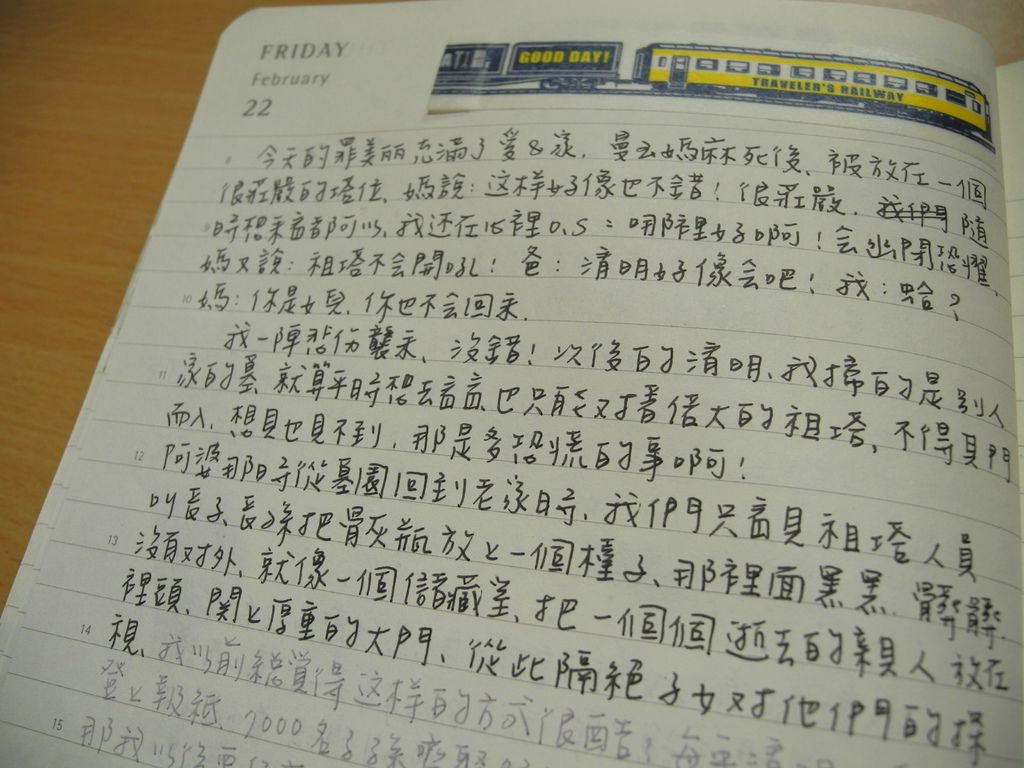 FRIDAY
February
22
GOOD DAY!
TRAVELER'S RAILWAY
8 今天的罪美丽充滿了愛&淚. 曼玄媽麻死後、被放在一個
很莊嚴的塔位、媽說:这样好像也不錯!很莊嚴.
9 時想來看都可以、我还在心裡O.S:哪裡好啊!会幽閉恐懼.
媽又說:祖塔不会開吼!爸:清明好像會吧!我:蛤?
10 媽:你是女兒、你也不会回來.
我一陣悲伤襲來、沒錯!次後的清明、我掃的是別人
11 家的墓、就算平時想去看看、也只能对著偌大的祖塔,不得其門
而入、想見也見不到、那是多恐慌的事啊!
12 阿婆那時從墓園回到老家時、我們只看見祖塔人員
叫長子、長孫把骨灰瓶放上一個檯子、那裡面黑黑、髒髒、
13 沒有对外、就像一個儲藏室、把一個個逝去的親人放在
裡頭、関上厚重的大門、從此隔絕子女对他們的探
14 視、我以前總覺得这样的方式很酷!每年清
登上報紙、7000名子孫
15 那我以後